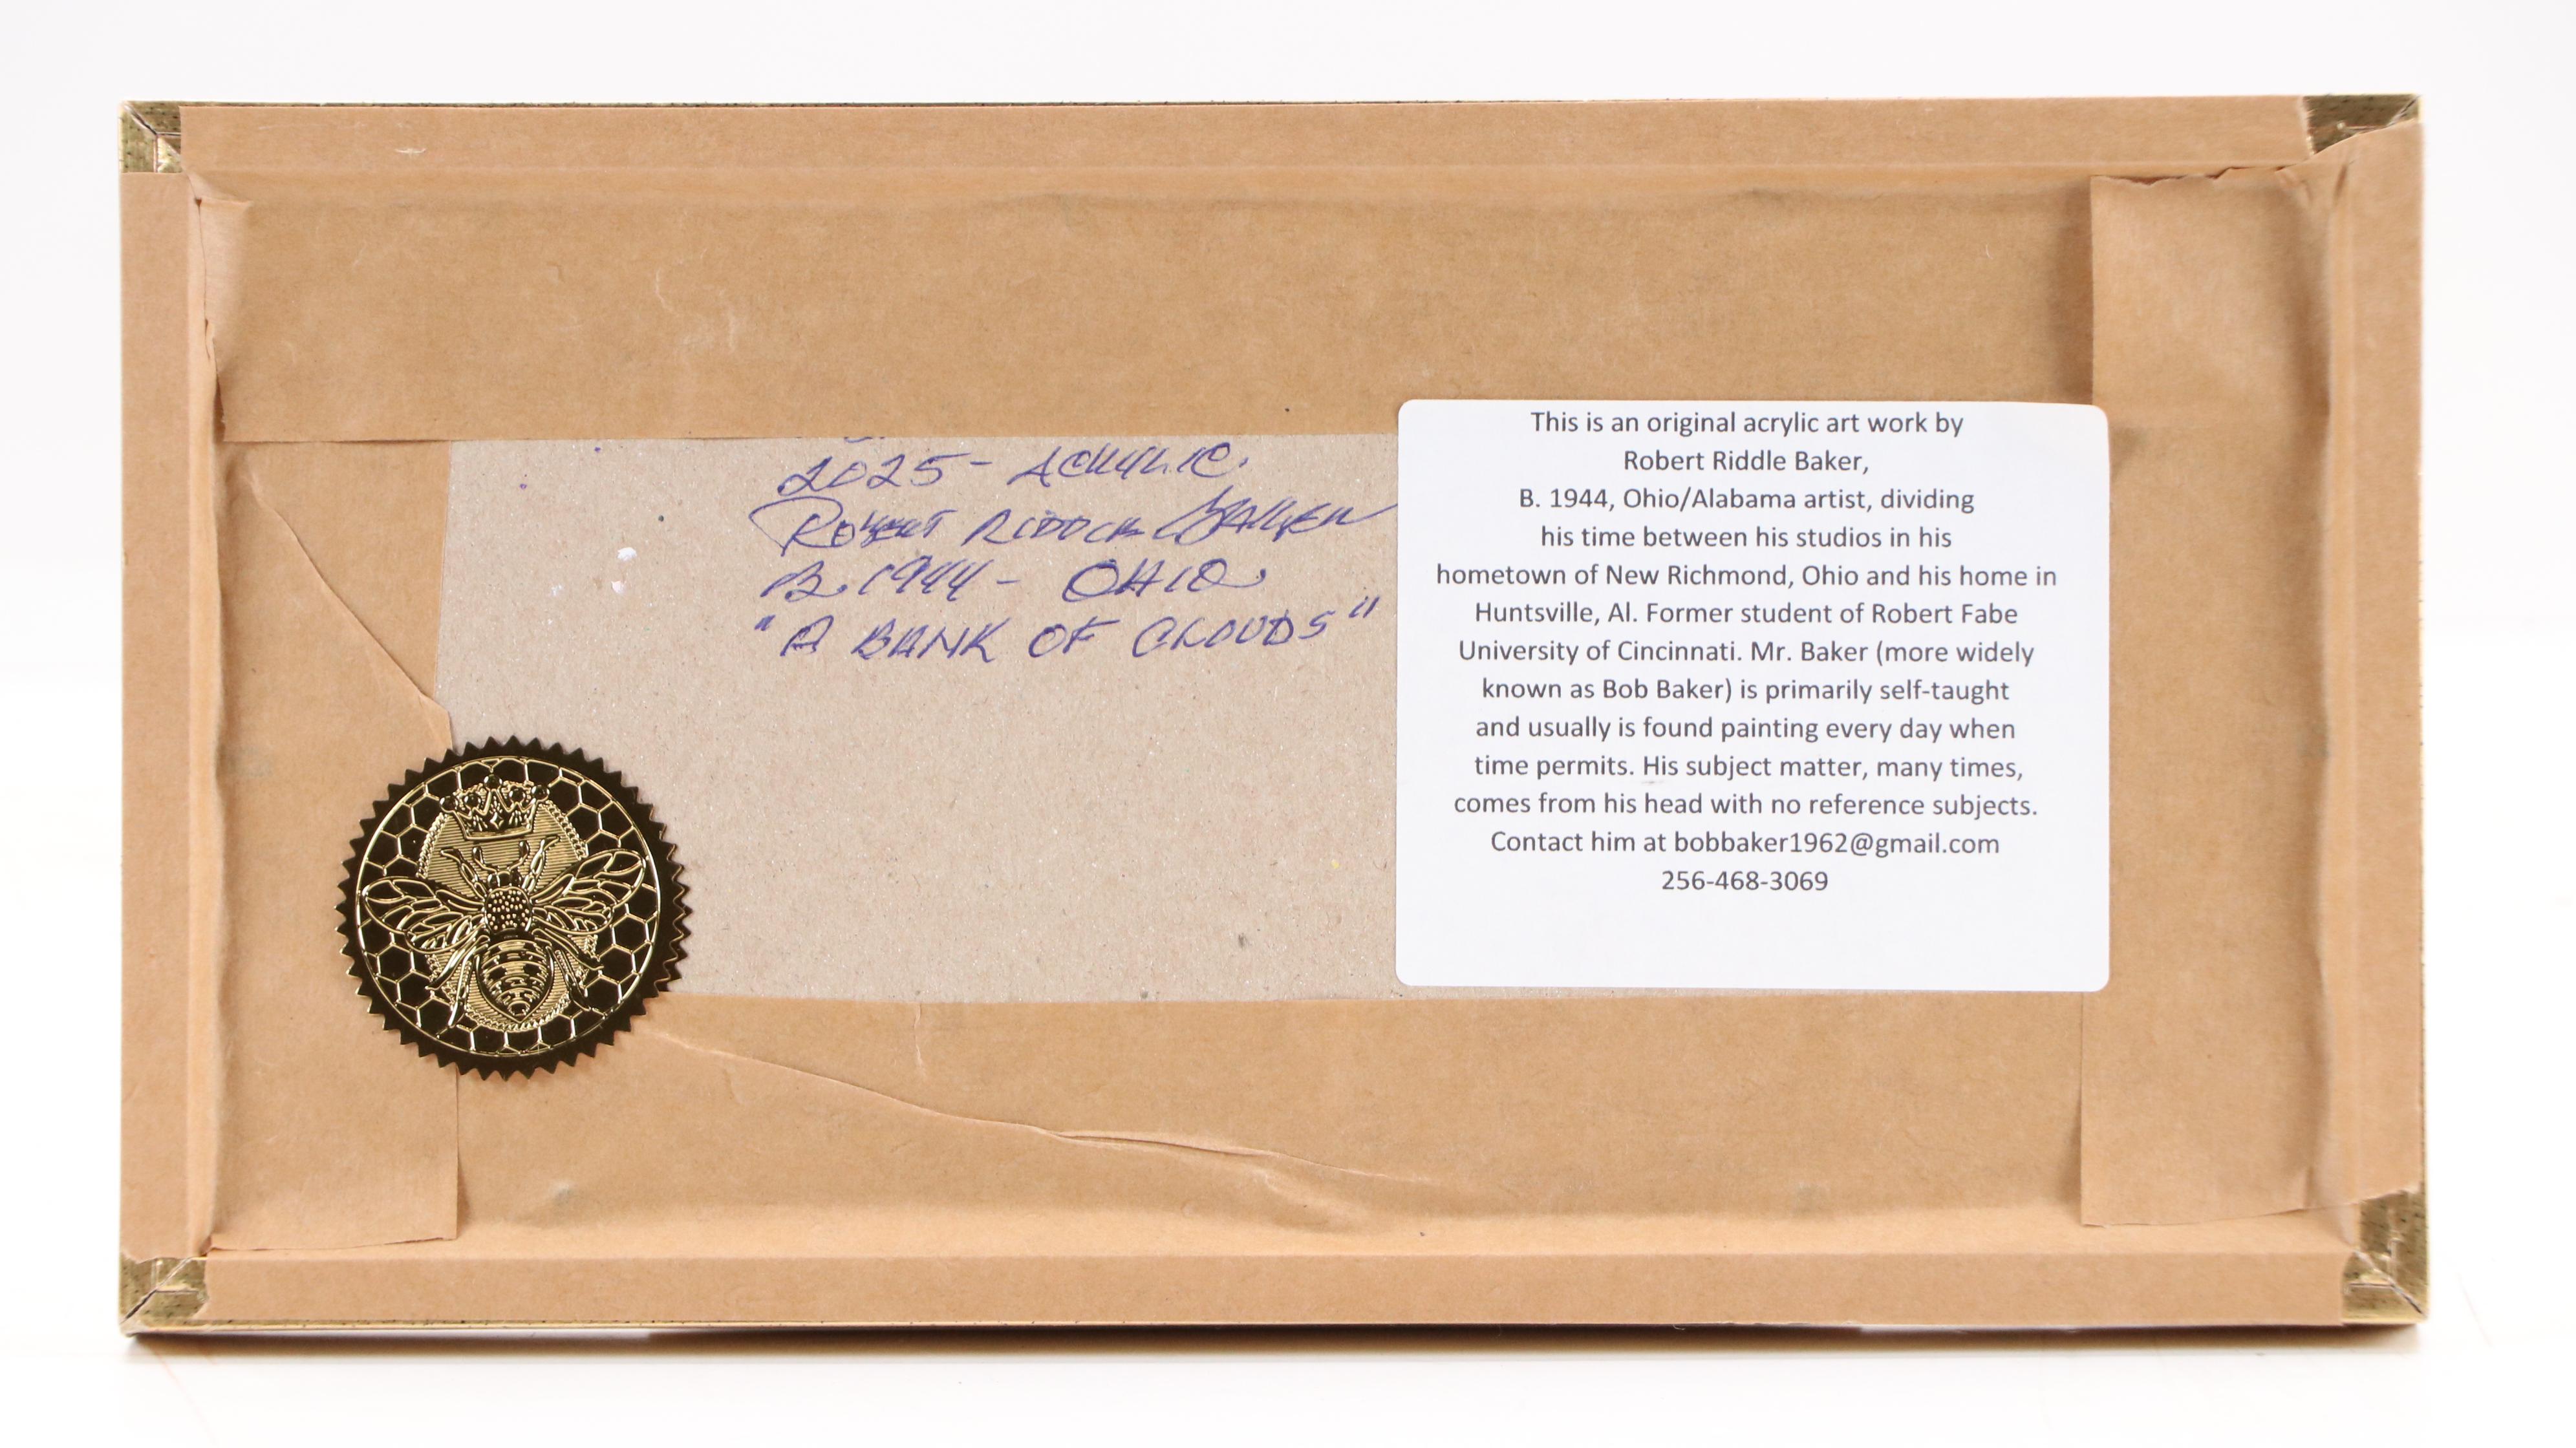 2025 - ACRYLIC.
ROBERT RIDDLE BAKER
B. 1944 - OHIO
"A BANK OF CLOUDS"
This is an original acrylic art work by
Robert Riddle Baker,
B. 1944, Ohio/Alabama artist, dividing
his time between his studios in his
hometown of New Richmond, Ohio and his home in
Huntsville, Al. Former student of Robert Fabe
University of Cincinnati. Mr. Baker (more widely
known as Bob Baker) is primarily self-taught
and usually is found painting every day when
time permits. His subject matter, many times,
comes from his head with no reference subjects.
Contact him at bobbaker1962@gmail.com
256-468-3069